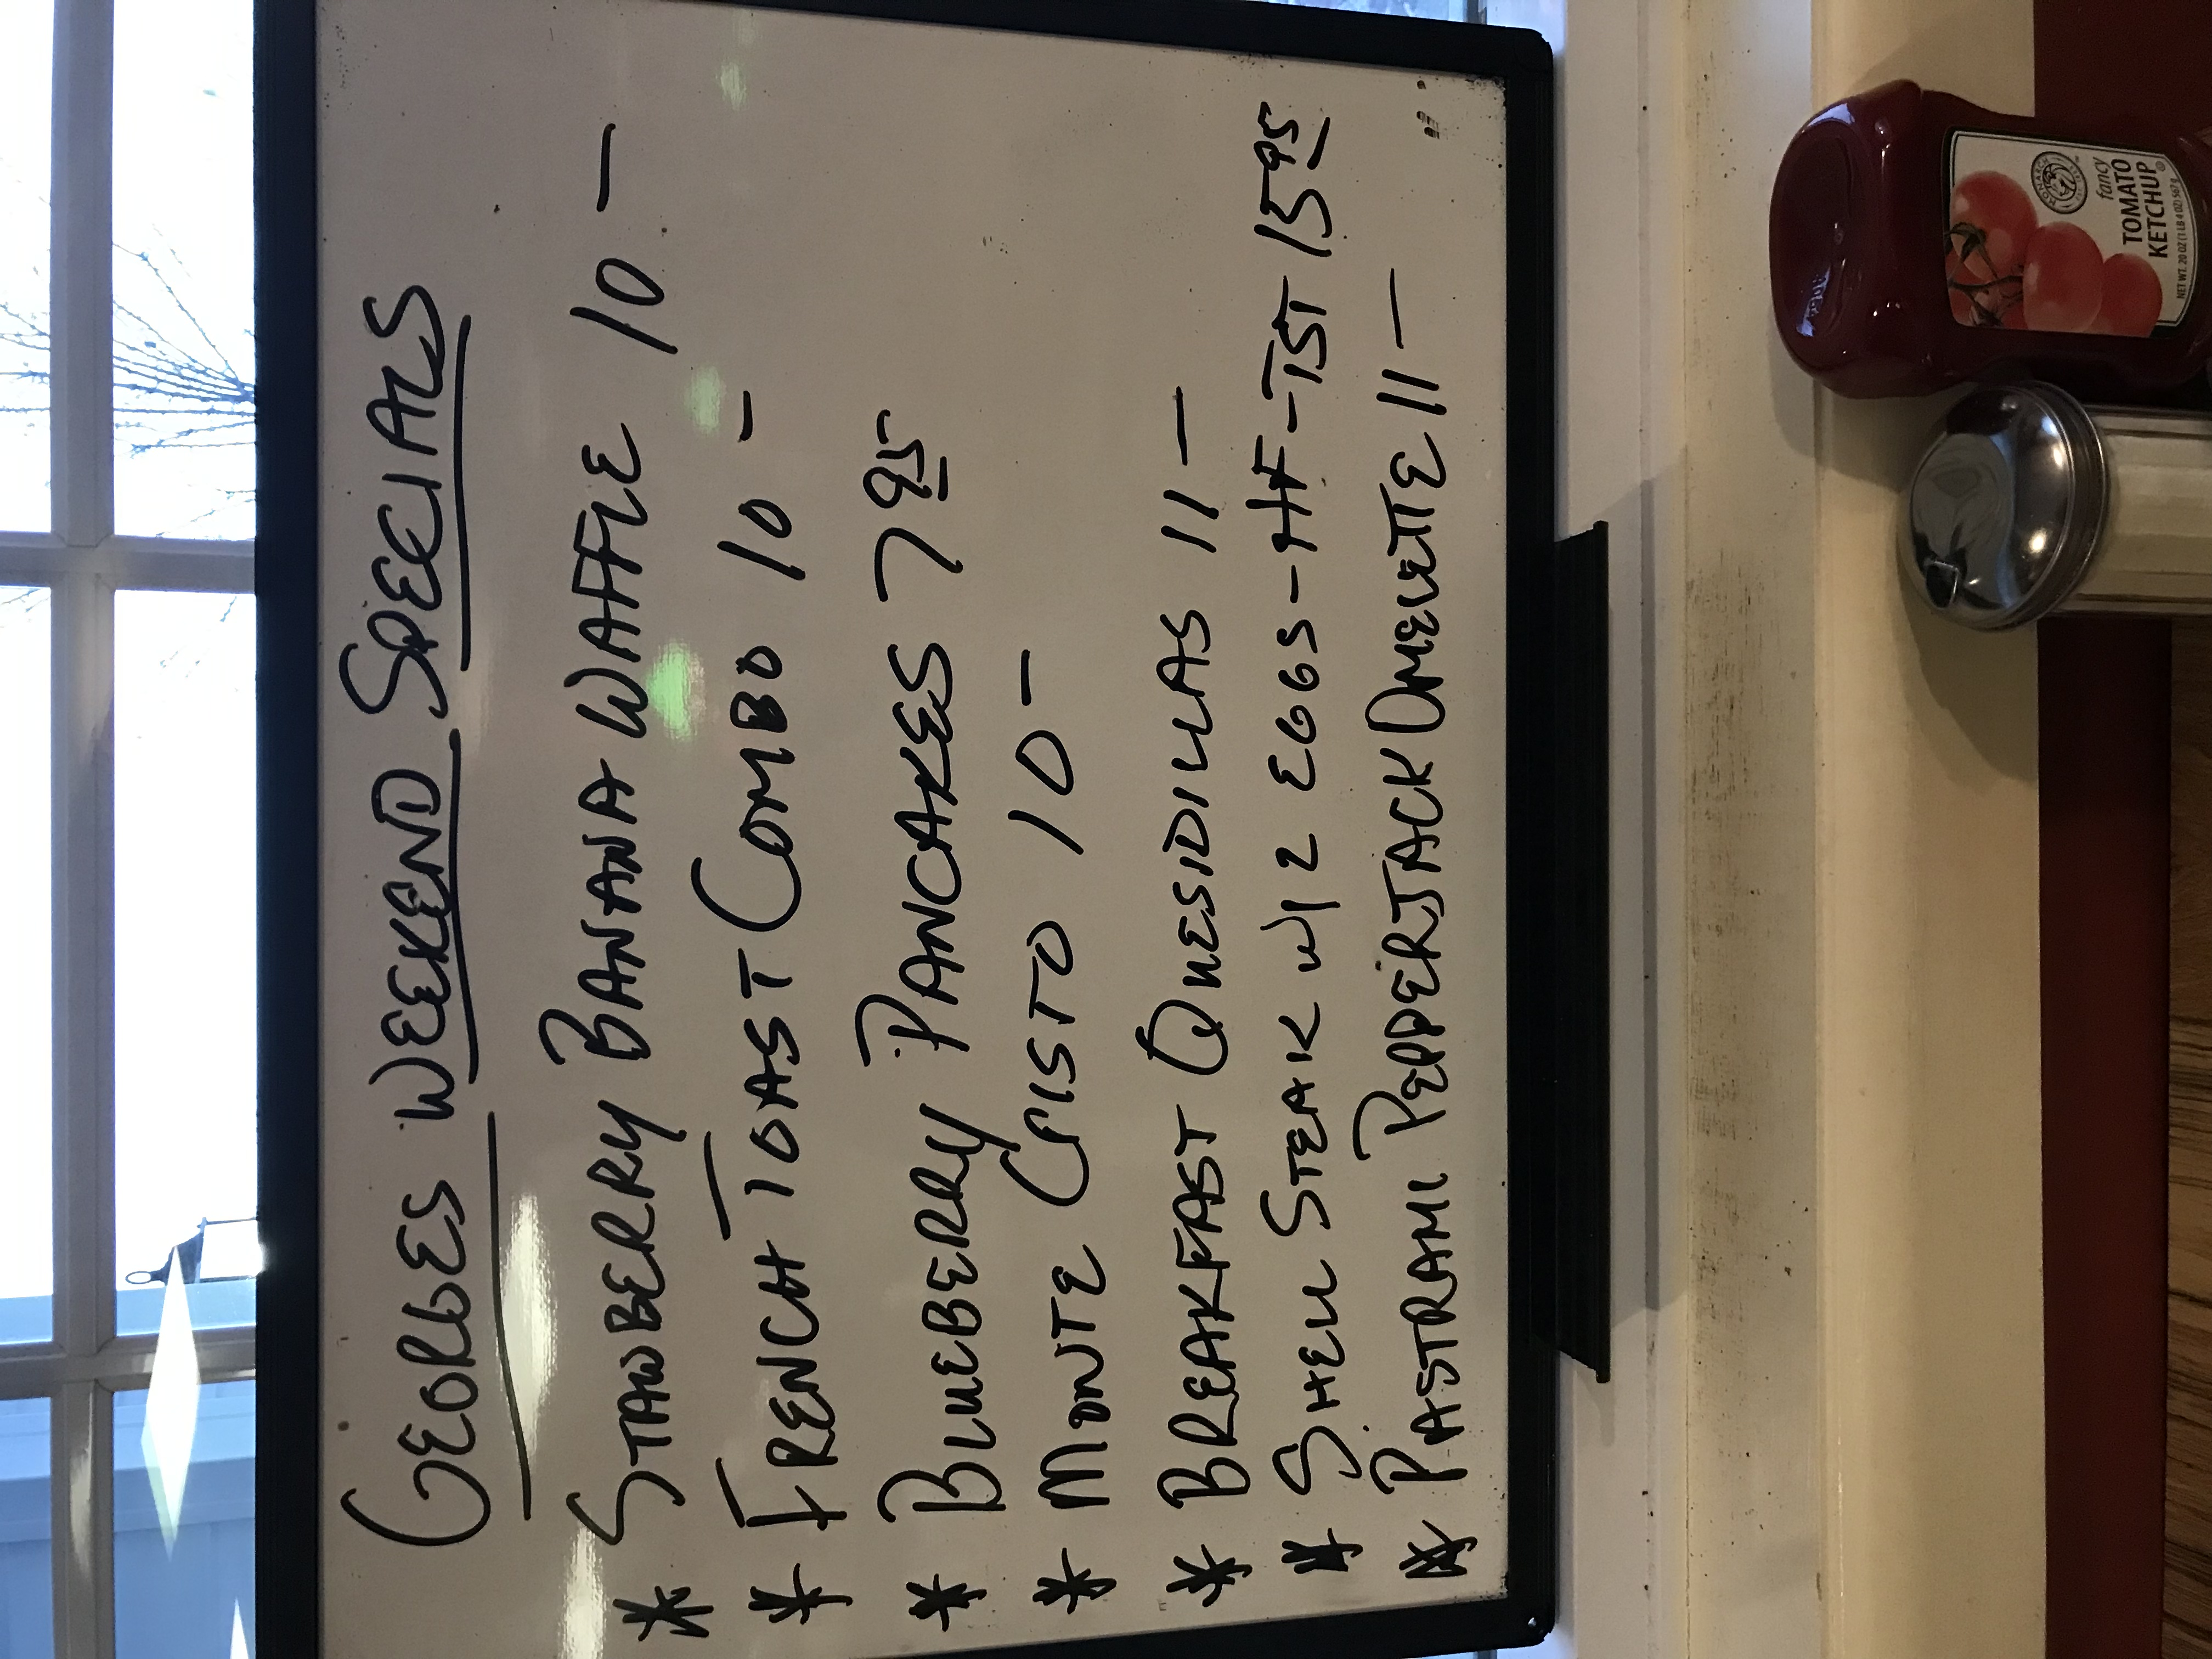 GEORGES WEEKEND SPECIALS
* STAWBERRY BANANA WAFFLE 10 —
* FRENCH TOAST COMBO 10 —
* BLUEBERRY PANCAKES 7 95
* MONTE CRISTO 10 —
* BREAKFAST QUESIDILLAS 11 —
* SHELL STEAK W/ 2 EGGS - HF - TST 15 95
* PASTRAMI PEPPERJACK OMELETTE 11 —
MONARCH
fancy
TOMATO
KETCHUP
NET WT. 20 OZ (1 LB 4 OZ) 567g